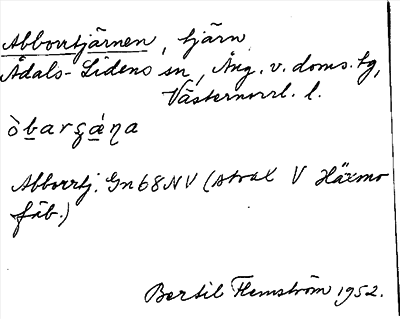 Abborrtjärnen, tjärn
Ådals-Lidens sn, Ång. v. doms. tg,
Västernorrl. l.
òbargána
Abborrtj. Gn 68 NV (strax V Häxmo
fäb.)
Bertil Flemström 1952.